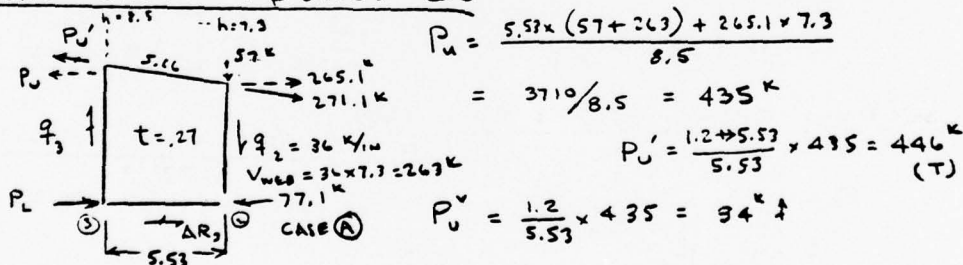 h=8.5
h=7.3
Pu'
Pu
5.66
57K
265.1K
271.1K
q3
t=.27
q2 = 36 K/IN
VWEB = 36×7.3 = 263K
PL
77.1K
3
2
ΔR3
CASE A
5.53
Pu = 5.53×(57+263) + 265.1×7.3
8.5
= 3710/8.5 = 435K
Pu' = 1.2↔5.53 / 5.53 × 435 = 446K
(T)
Puv = 1.2/5.53 × 435 = 94K ↑